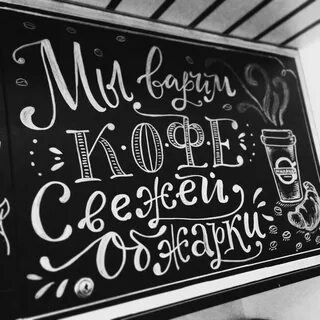 Мы варим
КОФЕ
Свежей
Обжарки